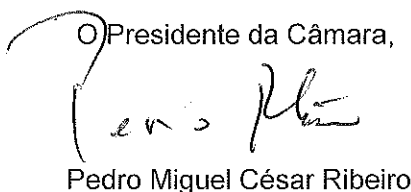 O Presidente da Câmara,
Pedro Miguel César Ribeiro